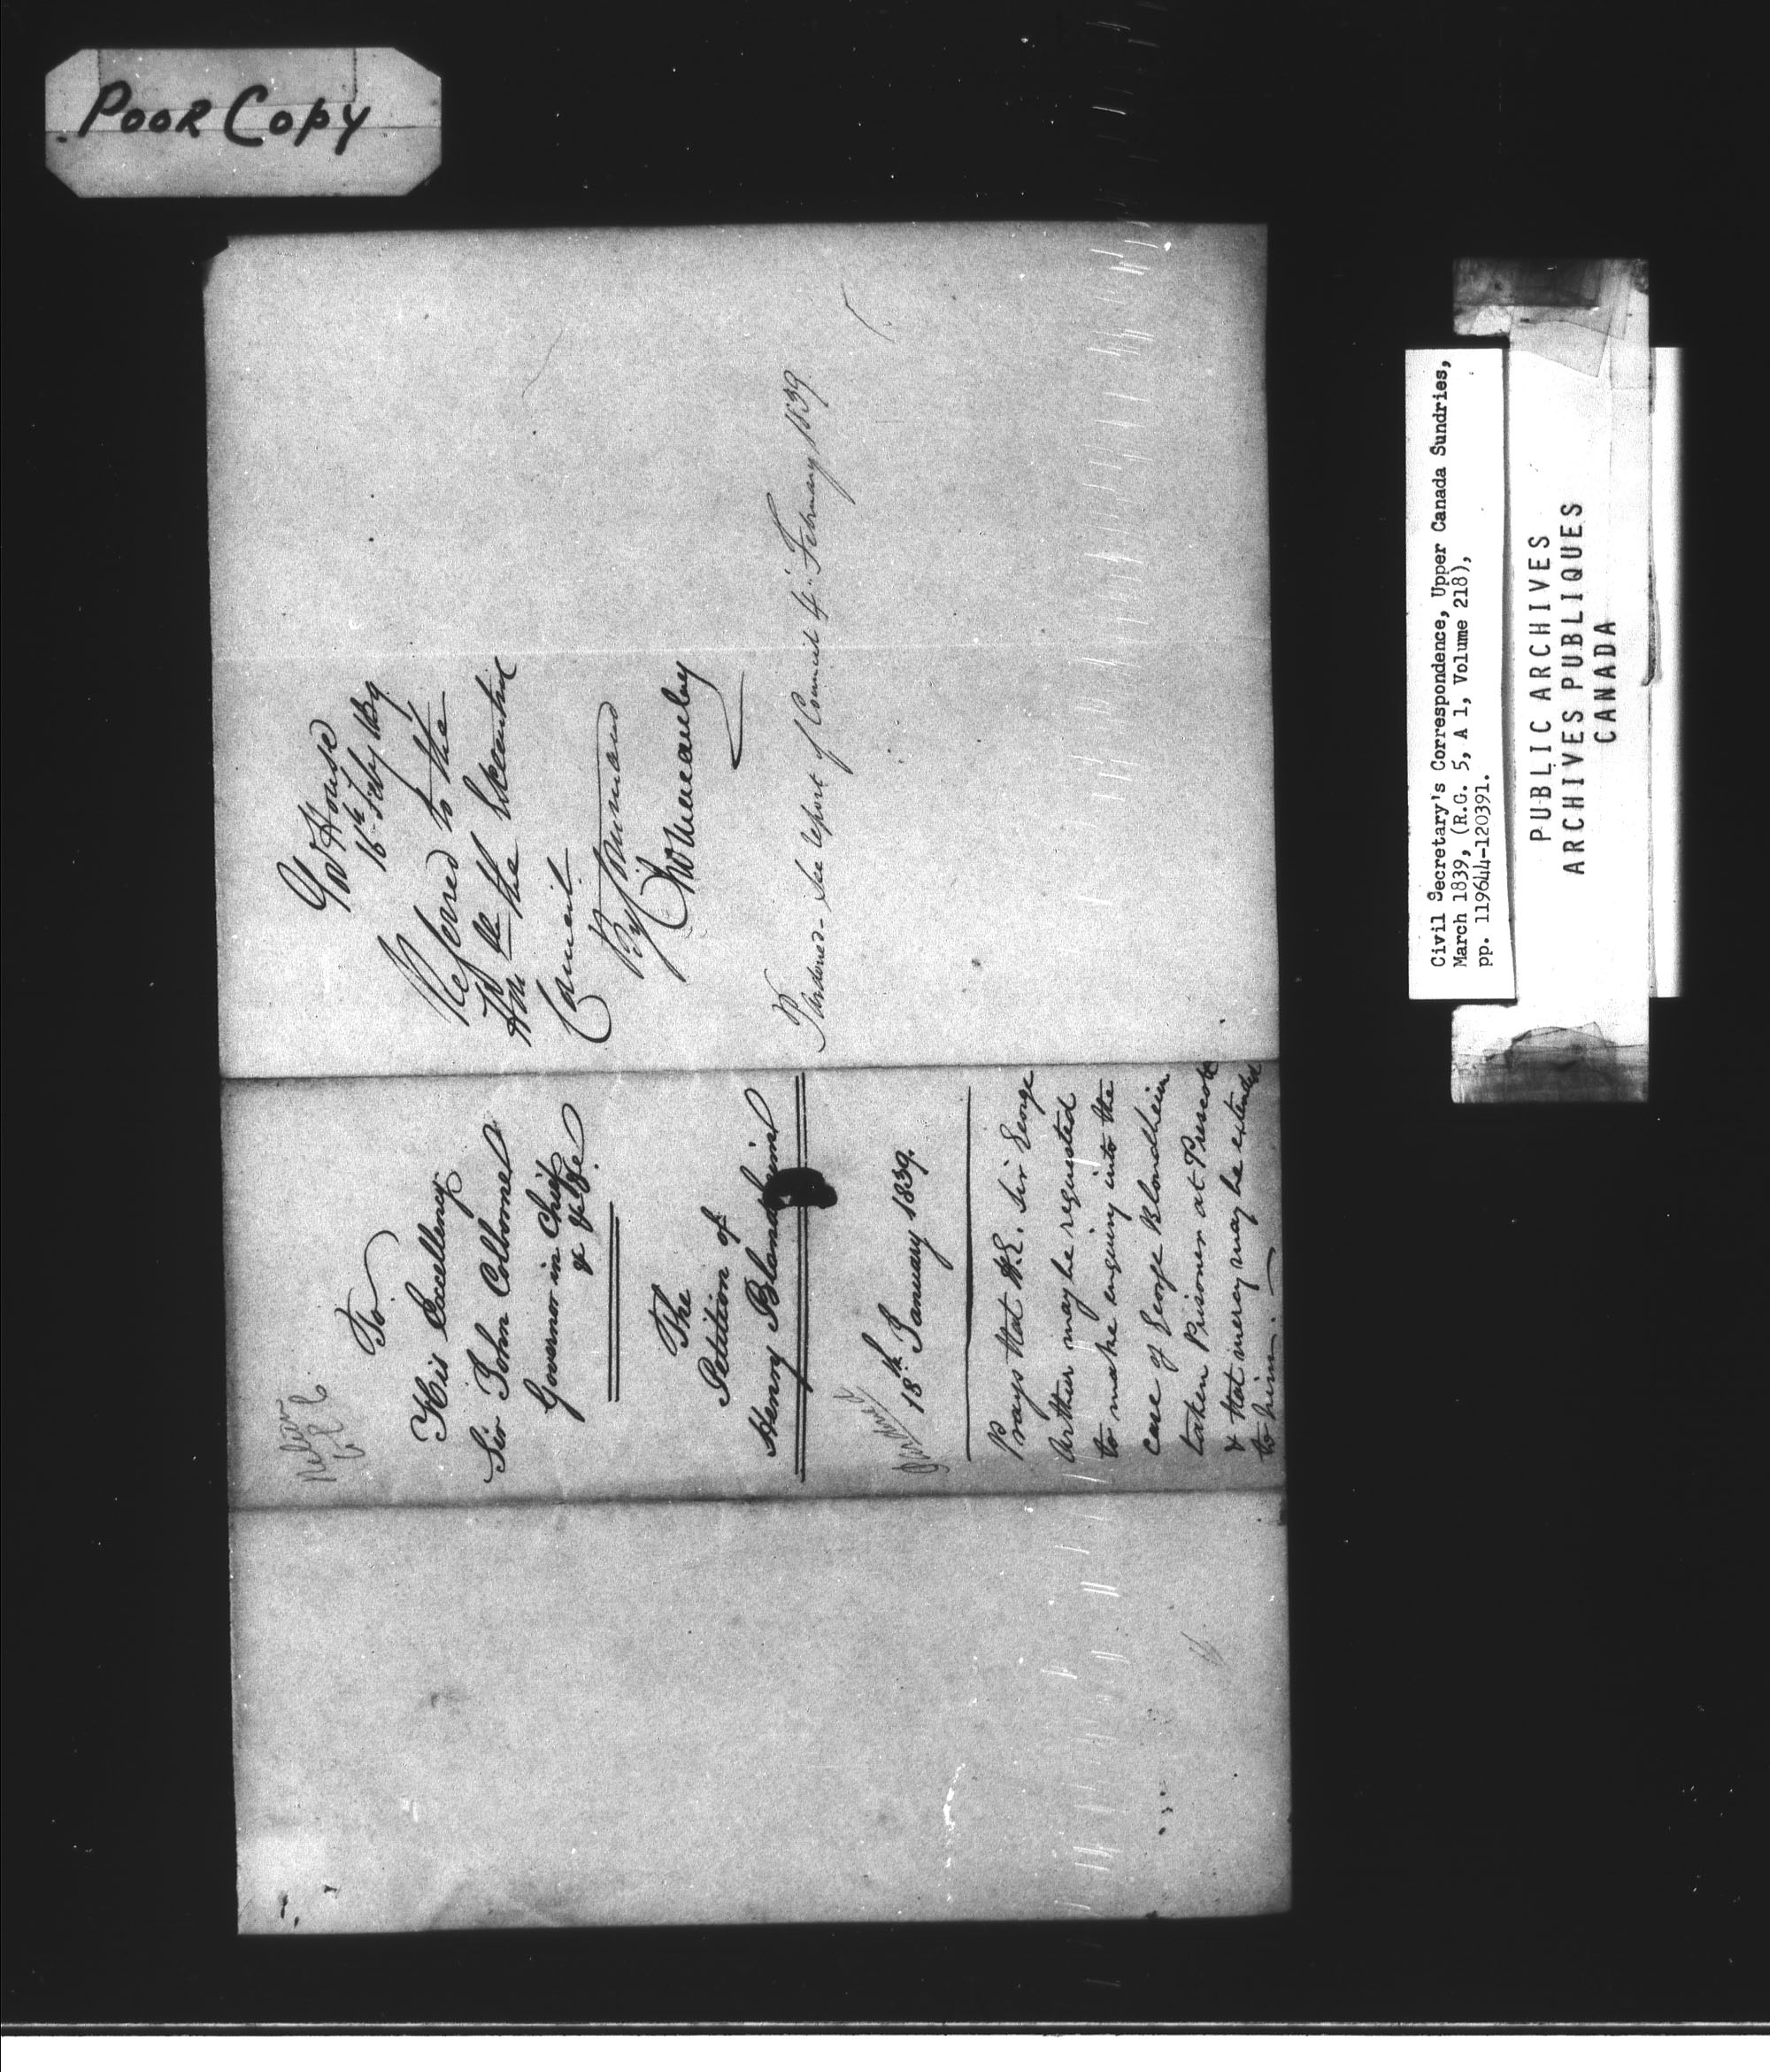 POOR COPY
Gvt House
16th Feby 1839
Referred to the
Honble the Executive
Council.
By Command
Pardoned. See report of Council 4th February 1839
To
His Excellency
Sir John Colborne
Governor in Chief
& &c &c.
The
Petition of
Henry Blondheim
18th January 1839.
Prays that H.E. Sir George
Arthur may be requested
to make enquiry into the
case of George Blondheim
taken Prisoner at Prescott
& that mercy may be extended
to him.
Civil Secretary's Correspondence, Upper Canada Sundries,
March 1839, (R.G. 5, A 1, Volume 218),
pp. 119644-120391.
PUBLIC ARCHIVES
ARCHIVES PUBLIQUES
CANADA